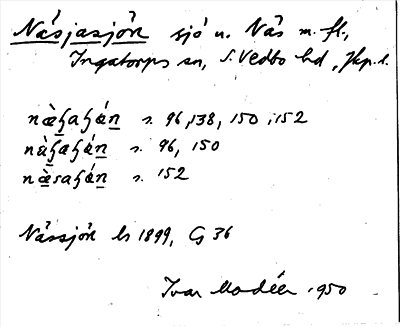 Näsjasjön sjö n. Näs m. fl.,
Ingatorps sn, S. Vedbo hd, Jkp. l.
s. 96, 138, 150, 152
s. 96, 150
s. 152
Nässjön ls 1899, G 36
Ivar Modéer 1950